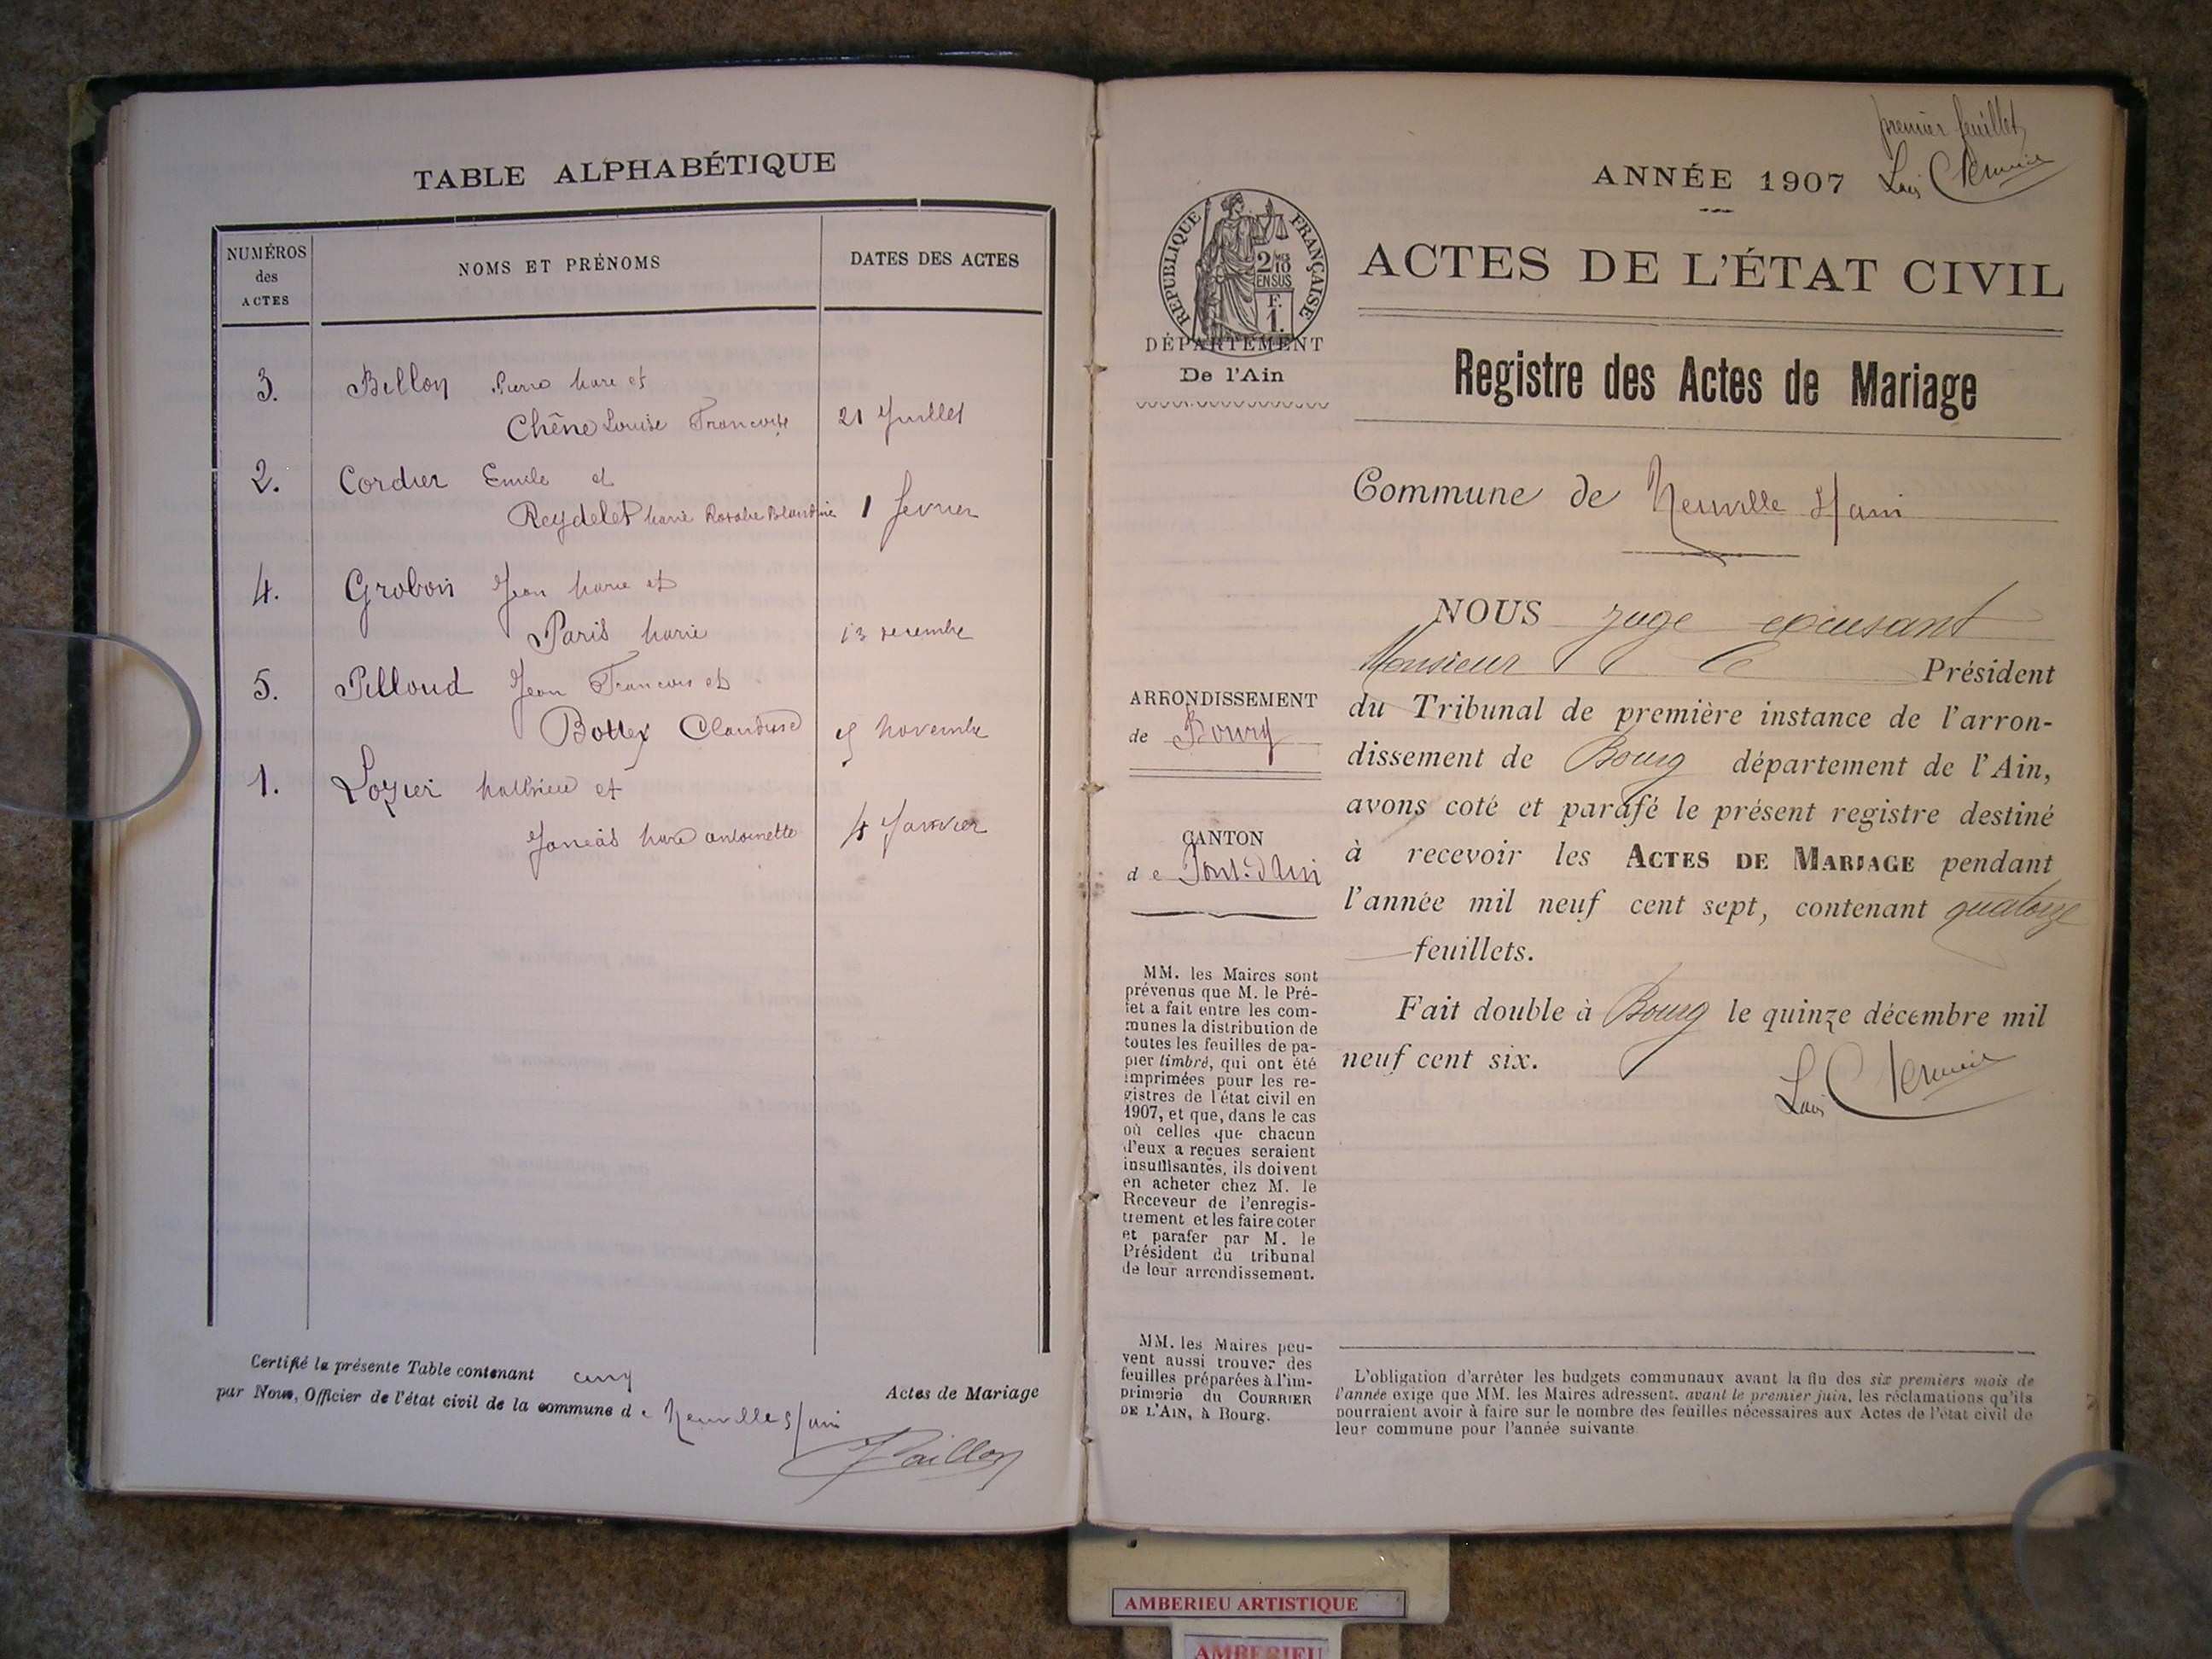 TABLE ALPHABÉTIQUE
NUMÉROS
des
ACTES
NOMS ET PRÉNOMS
DATES DES ACTES
3. Billon Pierre Marie et
Chêne Louise Francoise 21 Juillet
2. Cordier Emile et
Reydelet Marie Rosalie Blandine 1 fevrier
4. Grobon Jean Marie et
Paris Marie 13 decembre
5. Pilloud Jean Francois et
Bottex Claudine novembre
1. Lozier Mathieu et
antoinette 4 Janvier
Certifié la présente Table contenant cinq
Actes de Mariage
par Nous, Officier de l'état civil de la commune de Neuville s/ ain
premier feuillet
ANNÉE 1907
REPUBLIQUE FRANÇAISE
2/10
EN SUS
F.
1.
ACTES DE L'ÉTAT CIVIL
DÉPARTEMENT
De l'Ain
Registre des Actes de Mariage
Commune de Neuville s/ ain
NOUS juge excusant
Monsieur le Président
du Tribunal de première instance de l'arron-
dissement de Bourg département de l'Ain,
avons coté et parafé le présent registre destiné
à recevoir les ACTES DE MARIAGE pendant
l'année mil neuf cent sept, contenant quatorze
feuillets.
Fait double à Bourg le quinze décembre mil
neuf cent six.
ARRONDISSEMENT
de Bourg
CANTON
de Pont-d'Ain
MM. les Maires sont
prévenus que M. le Pré-
fet a fait entre les com-
munes la distribution de
toutes les feuilles de pa-
pier timbré, qui ont été
imprimées pour les re-
gistres de l'état civil en
1907, et que, dans le cas
où celles que chacun
d'eux a reçues seraient
insuffisantes, ils doivent
en acheter chez M. le
Receveur de l'enregis-
trement et les faire coter
et parafer par M. le
Président du tribunal
de leur arrondissement.
MM. les Maires peu-
vent aussi trouver des
feuilles préparées à l'im-
primerie du COURRIER
DE L'AIN, à Bourg.
L'obligation d'arrêter les budgets communaux avant la fin des six premiers mois de
l'année exige que MM. les Maires adressent, avant le premier juin, les réclamations qu'ils
pourraient avoir à faire sur le nombre des feuilles nécessaires aux Actes de l'état civil de
leur commune pour l'année suivante
AMBERIEU ARTISTIQUE
AMBERIEU